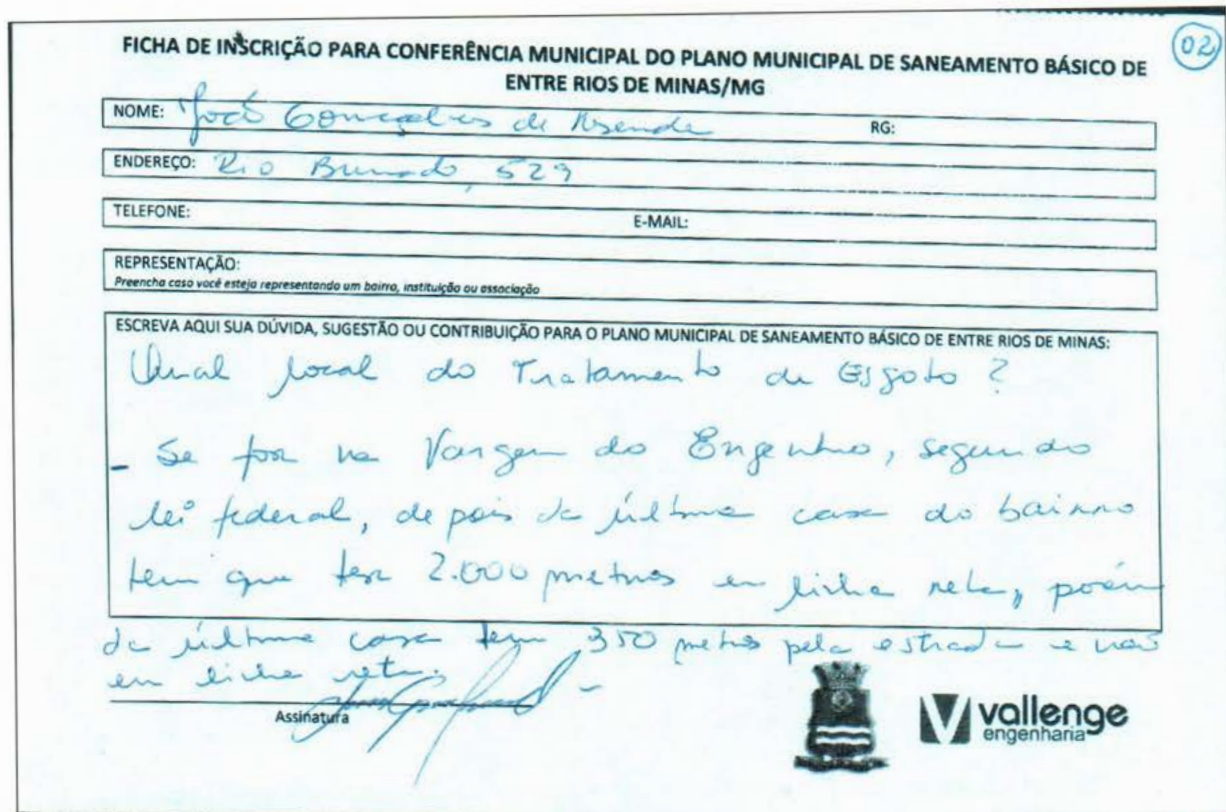 02
FICHA DE INSCRIÇÃO PARA CONFERÊNCIA MUNICIPAL DO PLANO MUNICIPAL DE SANEAMENTO BÁSICO DE
ENTRE RIOS DE MINAS/MG
NOME: José Gonçalves de Resende RG:
ENDEREÇO: Rio Brumado, 529
TELEFONE: E-MAIL:
REPRESENTAÇÃO:
Preencha caso você esteja representando um bairro, instituição ou associação
ESCREVA AQUI SUA DÚVIDA, SUGESTÃO OU CONTRIBUIÇÃO PARA O PLANO MUNICIPAL DE SANEAMENTO BÁSICO DE ENTRE RIOS DE MINAS:
Qual local do Tratamento de Esgoto ?
- Se for na Vargem do Engenho, segundo
lei federal, depois da última casa do bairro
tem que ter 2.000 metros em linha reta, porém
da última casa tem 350 metros pela estrada e não
em linha reta.
Assinatura
vallenge
engenharia